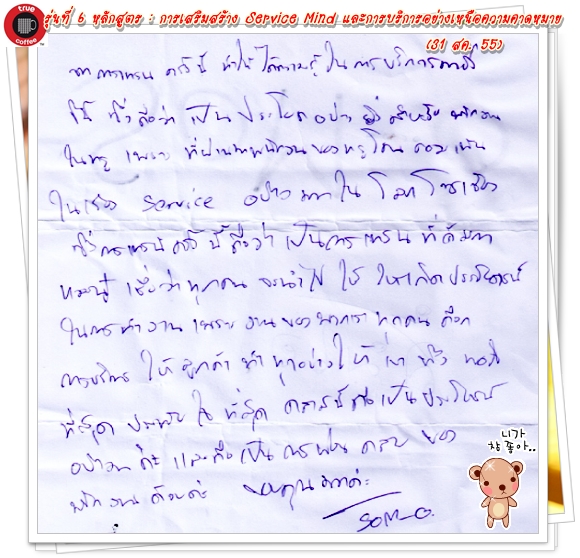 true coffee
รุ่นที่ 6 หลักสูตร : การเสริมสร้าง Service Mind และการบริการอย่างเหนือความคาดหมาย
(31 สค. 55)
จากการเทรน ครั้งนี้ ทำให้ได้ความรู้ในการบริการ
ซึ่งถือว่า เป็นประโยชน์อย่างยิ่งสำหรับพนักงาน
ในทรู เพราะ ที่ผ่านมาพนักงานของทรูโดน
ในเรื่อง Service อย่างมากใน โลกโซเชียว
ซึ่งการเทรนครั้งนี้ถือว่าเป็นการเทรน ที่ดีมาก
เชื่อว่าทุกคน จะนำไป ใช้ ให้เกิดประโยชน์
ในการทำงาน เพราะ งานของพวกเราทุกคน คือ
การบริการ ให้ ลูกค้า ทำทุกอย่างให้
ที่สุด ประทับใจ ที่สุด เป็นประโยชน์
อย่างมาก ค่ะ และถือเป็นการ ของ
พนักงานด้วยค่ะ ขอบคุณมากค่ะ
SOM-O.
니가
참 좋아..